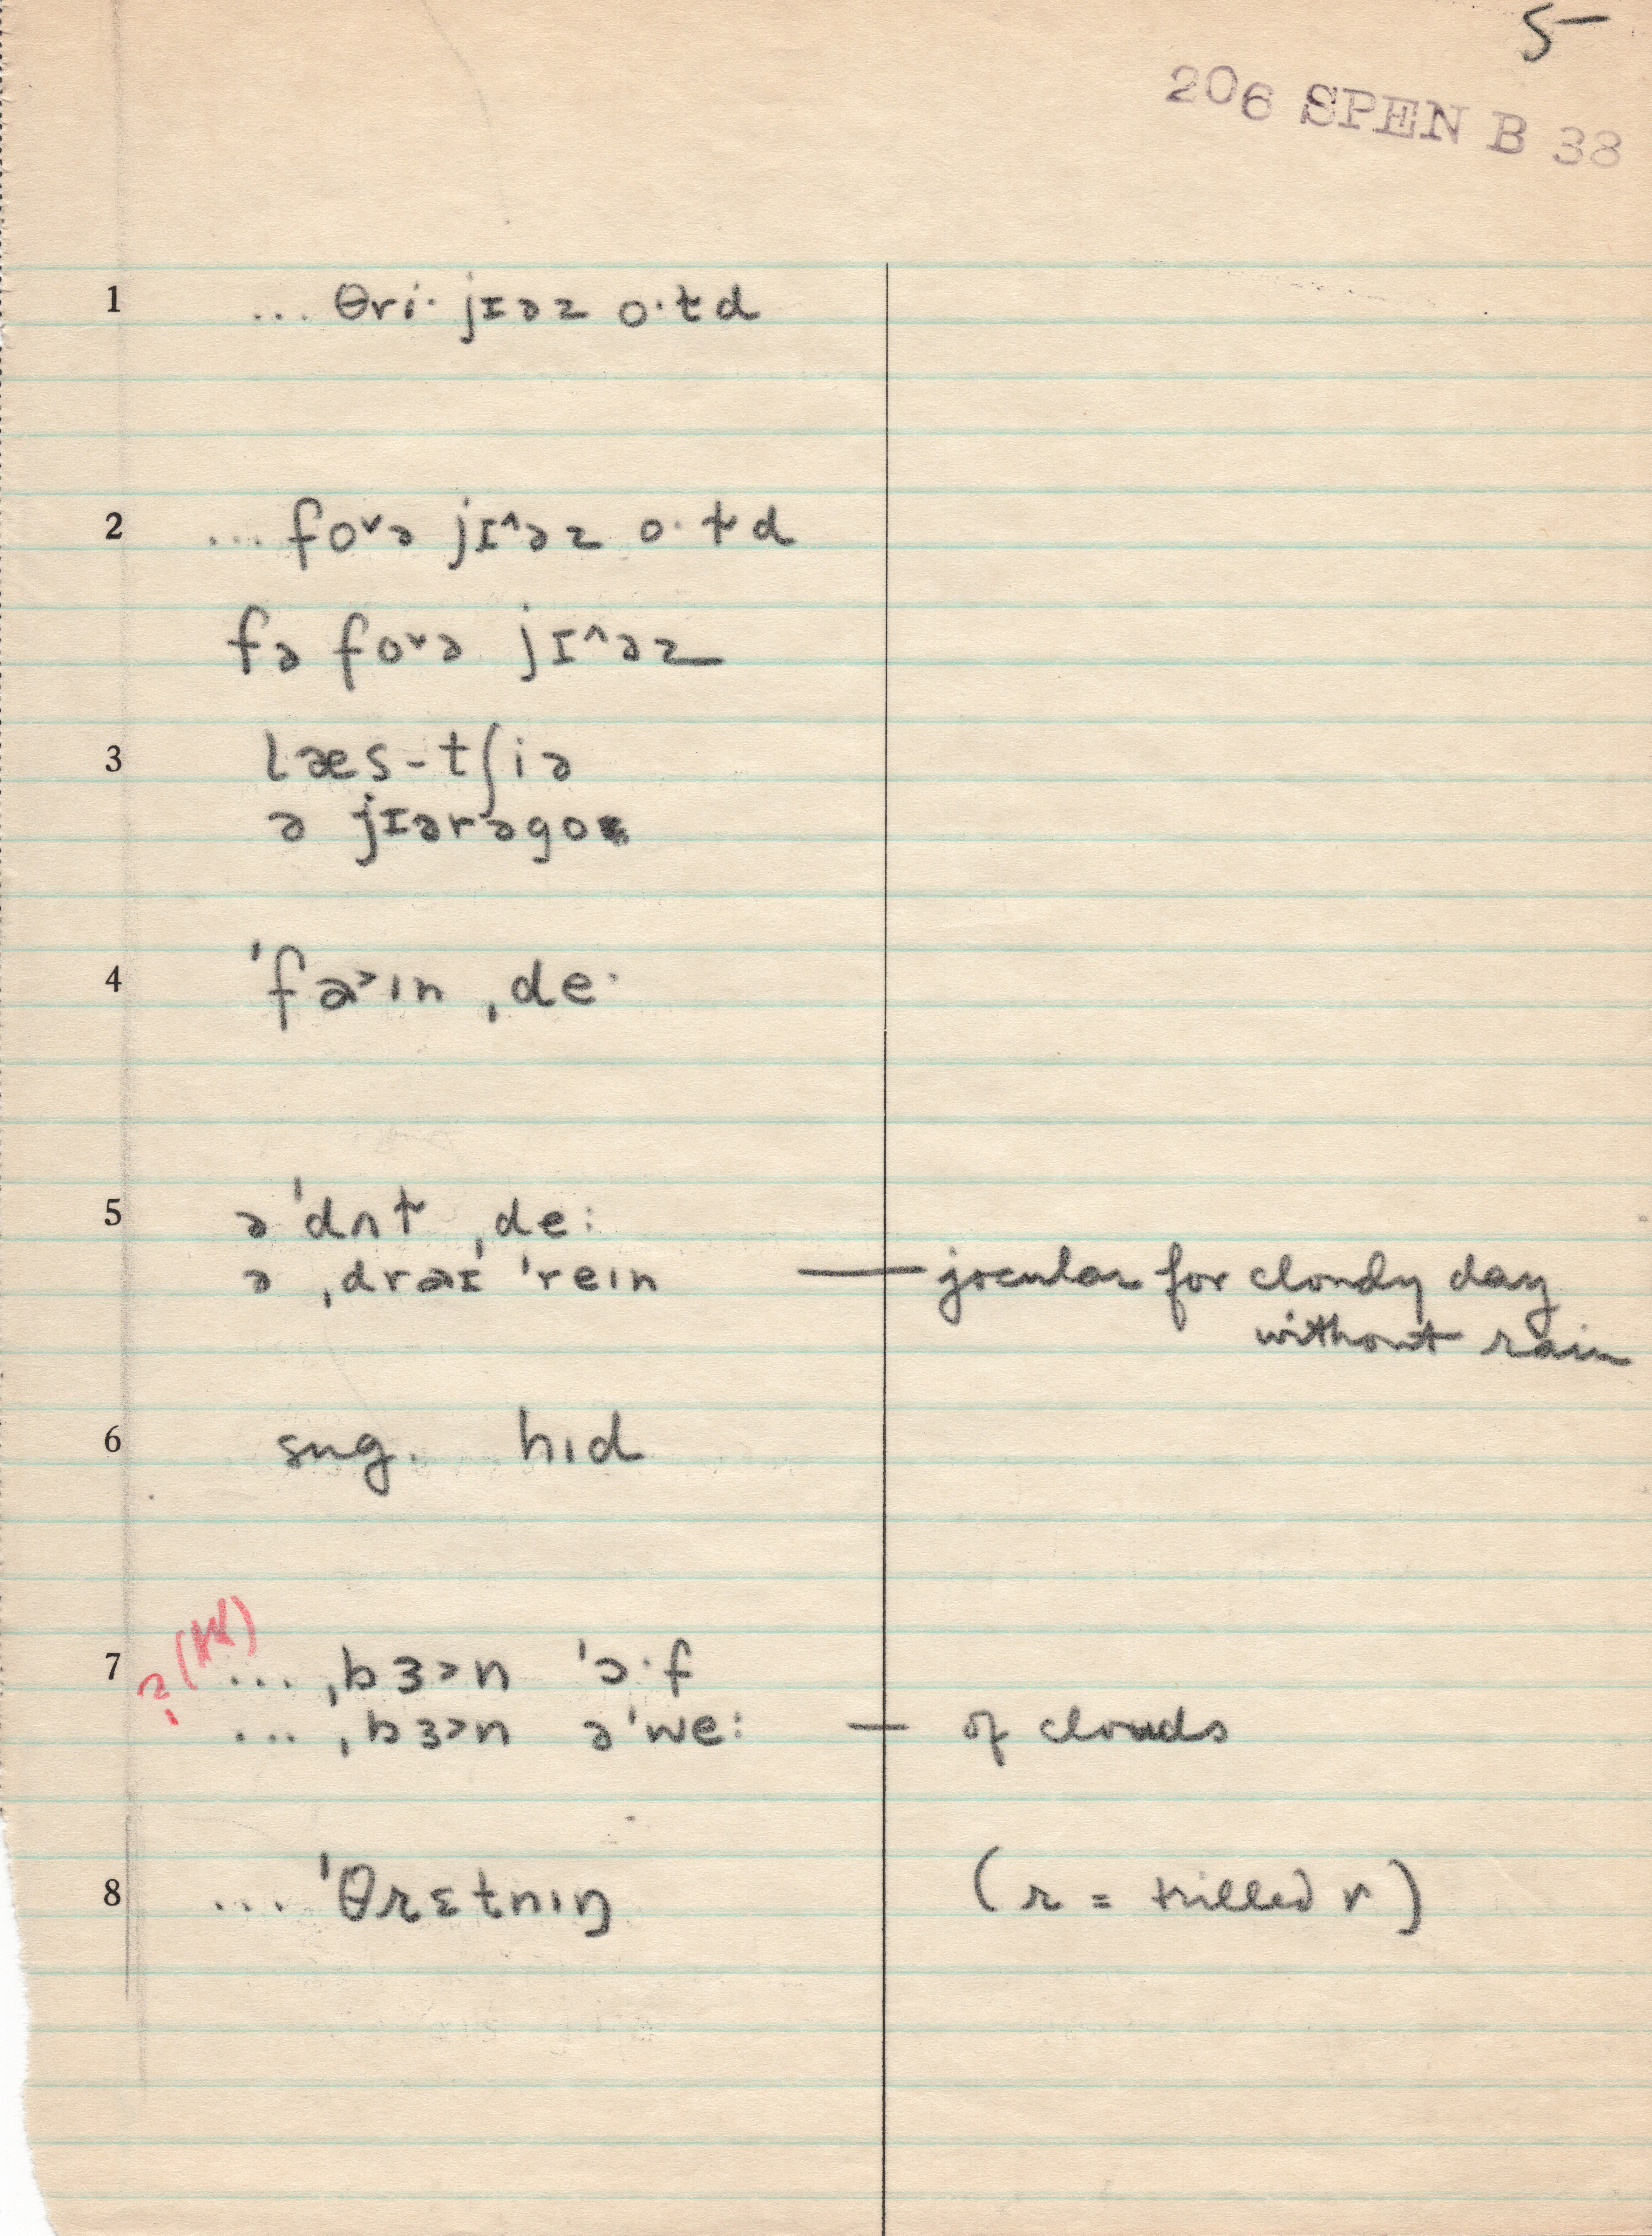 5
206 SPEN B 38
1 ... θri· jɪəz o·ɫd
2 ... fo˅ə jɪ^əz o·ɫd
fə fo˅ə jɪ^əz
3 læs-tʃiə
ə jɪərəgo
4 ˈfa˃ın ˌde·
5 ə ˈdʌɫ ˌde:
ə ˌdraɪ ˈreın — jocular for cloudy day
without rain
6 sug. hıd
?(W)
7 ... ˌbɜ˃n ˈɔ·f
... ˌbɜ˃n əˈwe: — of clouds
8 ... ˈθrɛtnıŋ (r = trilled r)